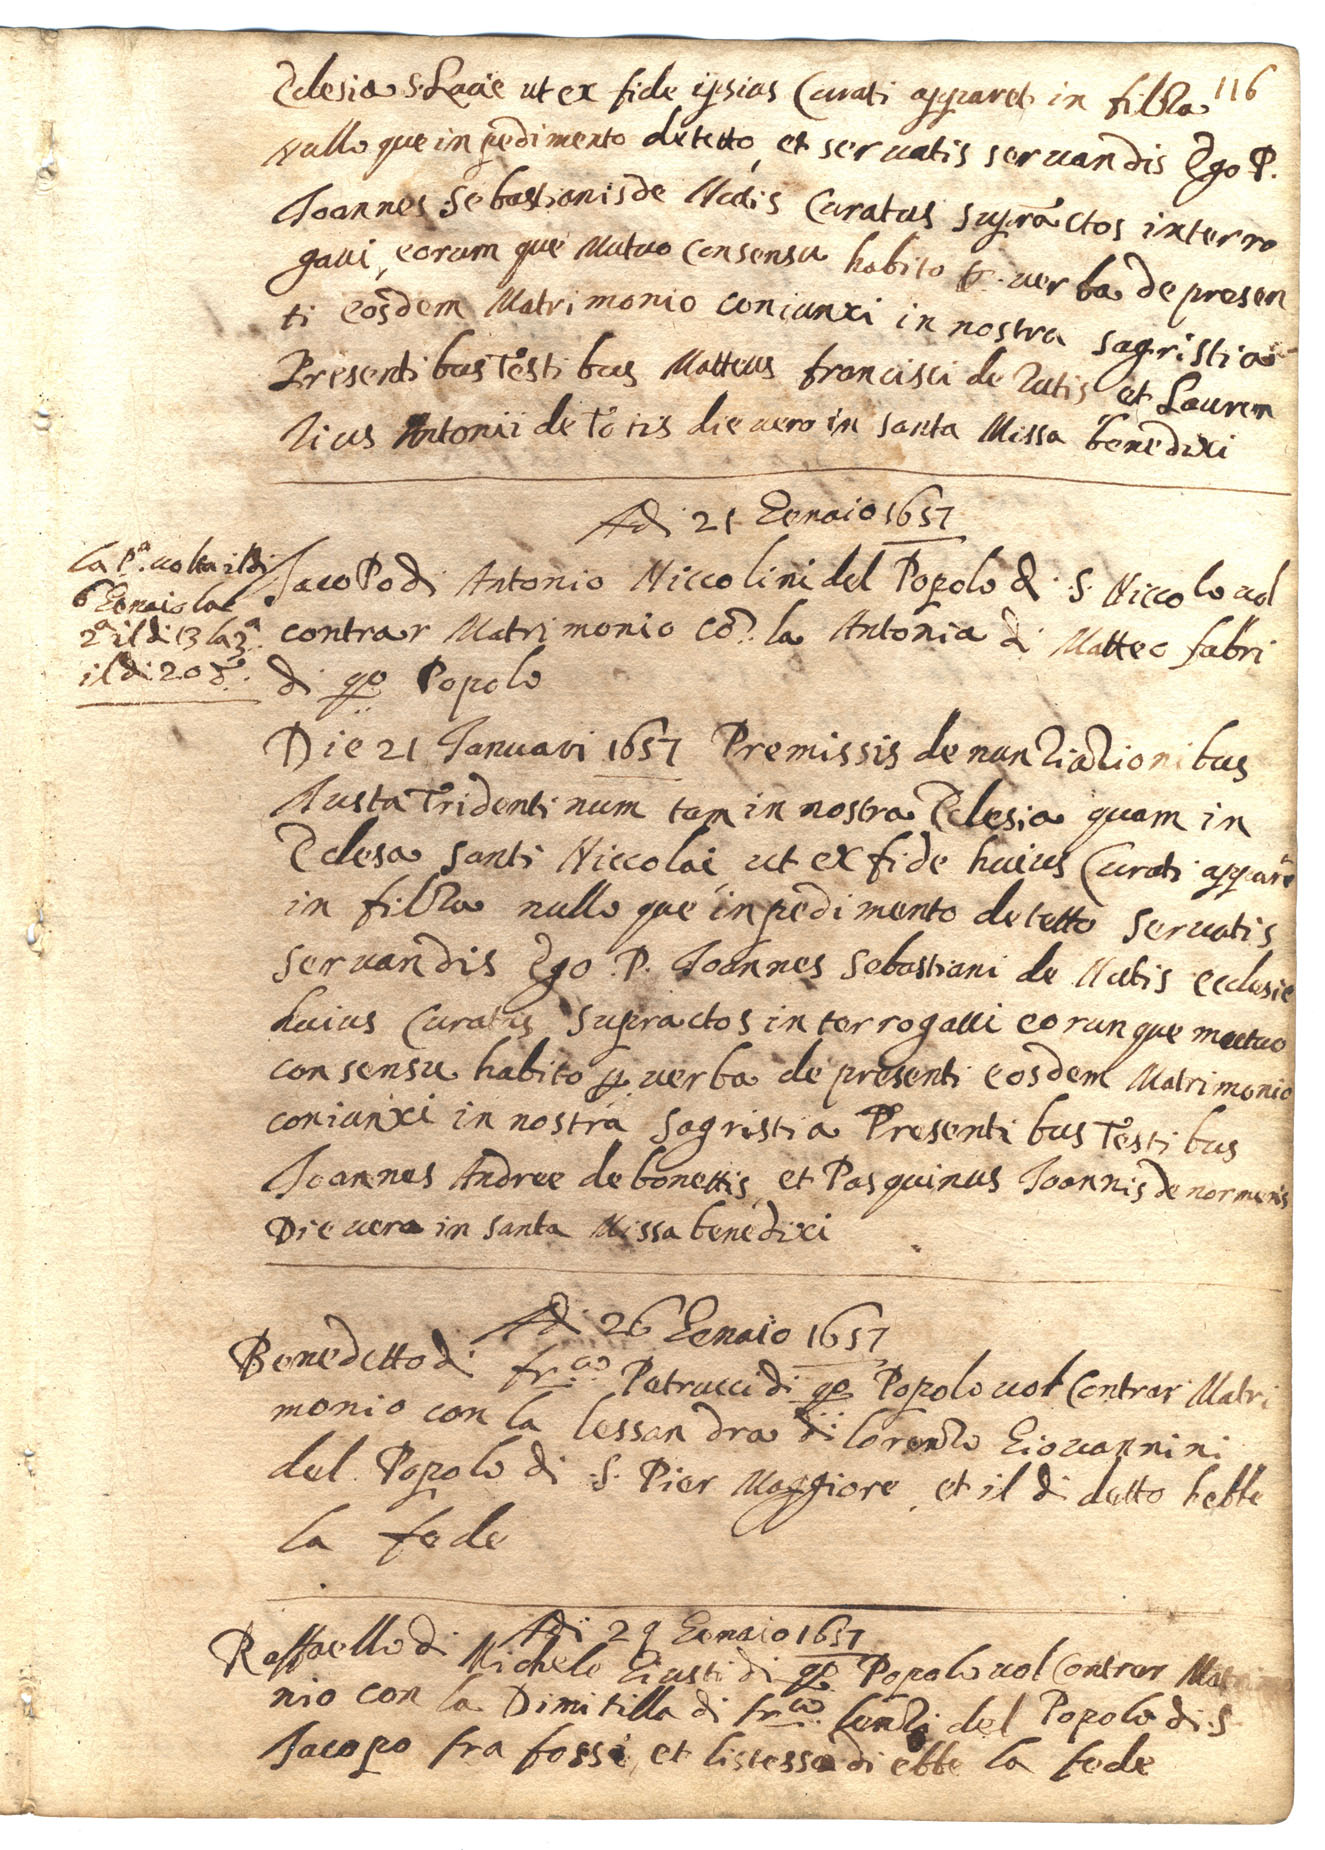 Eclesia S. Lucie ut ex fide ipsius Curati apparet in filza 116
nulloque inpedimento detetto, et servatis servandis Ego P.
Joannes Sebastianis de Nutis Curatus supractos interro
gaui, eorum que Mutuo Consensu habito p. uerba de presen
ti eosdem Matrimonio coniunxi in nostra sagristia
Presentibus Testibus Matteus francisci de Zutis et Lauren
tius Antonii de Totis die uero in santa Missa benedixi
Adi 21 Genaio 1657
La Pa. uolta il di
6 Genaio la
2a il di 13 la 3a
il di 20 d.
Jacopo di Antonio Niccolini del Popolo di S. Niccolo uol
contrar Matrimonio co. la Antonia di Matteo fabri
di qo Popolo
Die 21 Januari 1657 Premissis denuntiationibus
Iusta Tridentinum tam in nostra Eclesia quam in
Eclesa santi Niccolai ut ex fide huius Curati appare
in filza nulloque inpedimento detetto seruatis
seruandis Ego P. Joannes Sebastiani de Nutis ecclesie
huius Curatus supractos interrogaui eorunque mutuo
consensu habito p uerba de presenti eosdem Matrimonio
coniunxi in nostra sagristia Presentibus Testibus
Joannes Andree de bonettis, et Pasquinus Joannis de normenis
Die uero in santa Missa benedixi
Adi 26 Genaio 1657
Benedetto di fr.co Petrucci di qo Popolo uol Contrar Matri
monio con la lessandra di lorenzo Giouannini
del Popolo di S. Pier Maggiore, et il di detto hebbe
la fede
Adi 29 Genaio 1657
Raffaello di Michele Giusti di qo Popolo uol Contrar Matrimo
nio con la Dimitilla di fr.co lenzi del Popolo di S
Jacopo fra fossi, et listesso di ebbe la fede